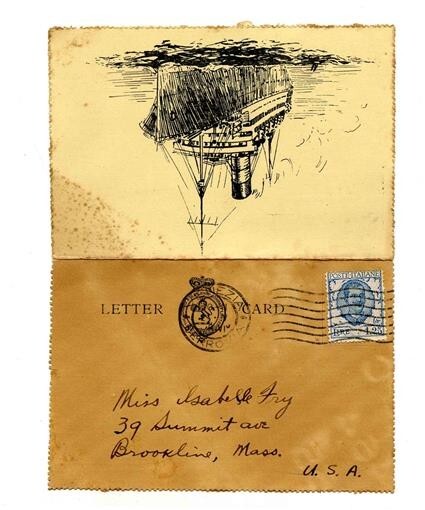 POSTE ITALIANE
LETTER CARD
LIRE 1,25
Miss Isabelle Fry
39 Summit ave
Brookline, Mass.
U. S. A.